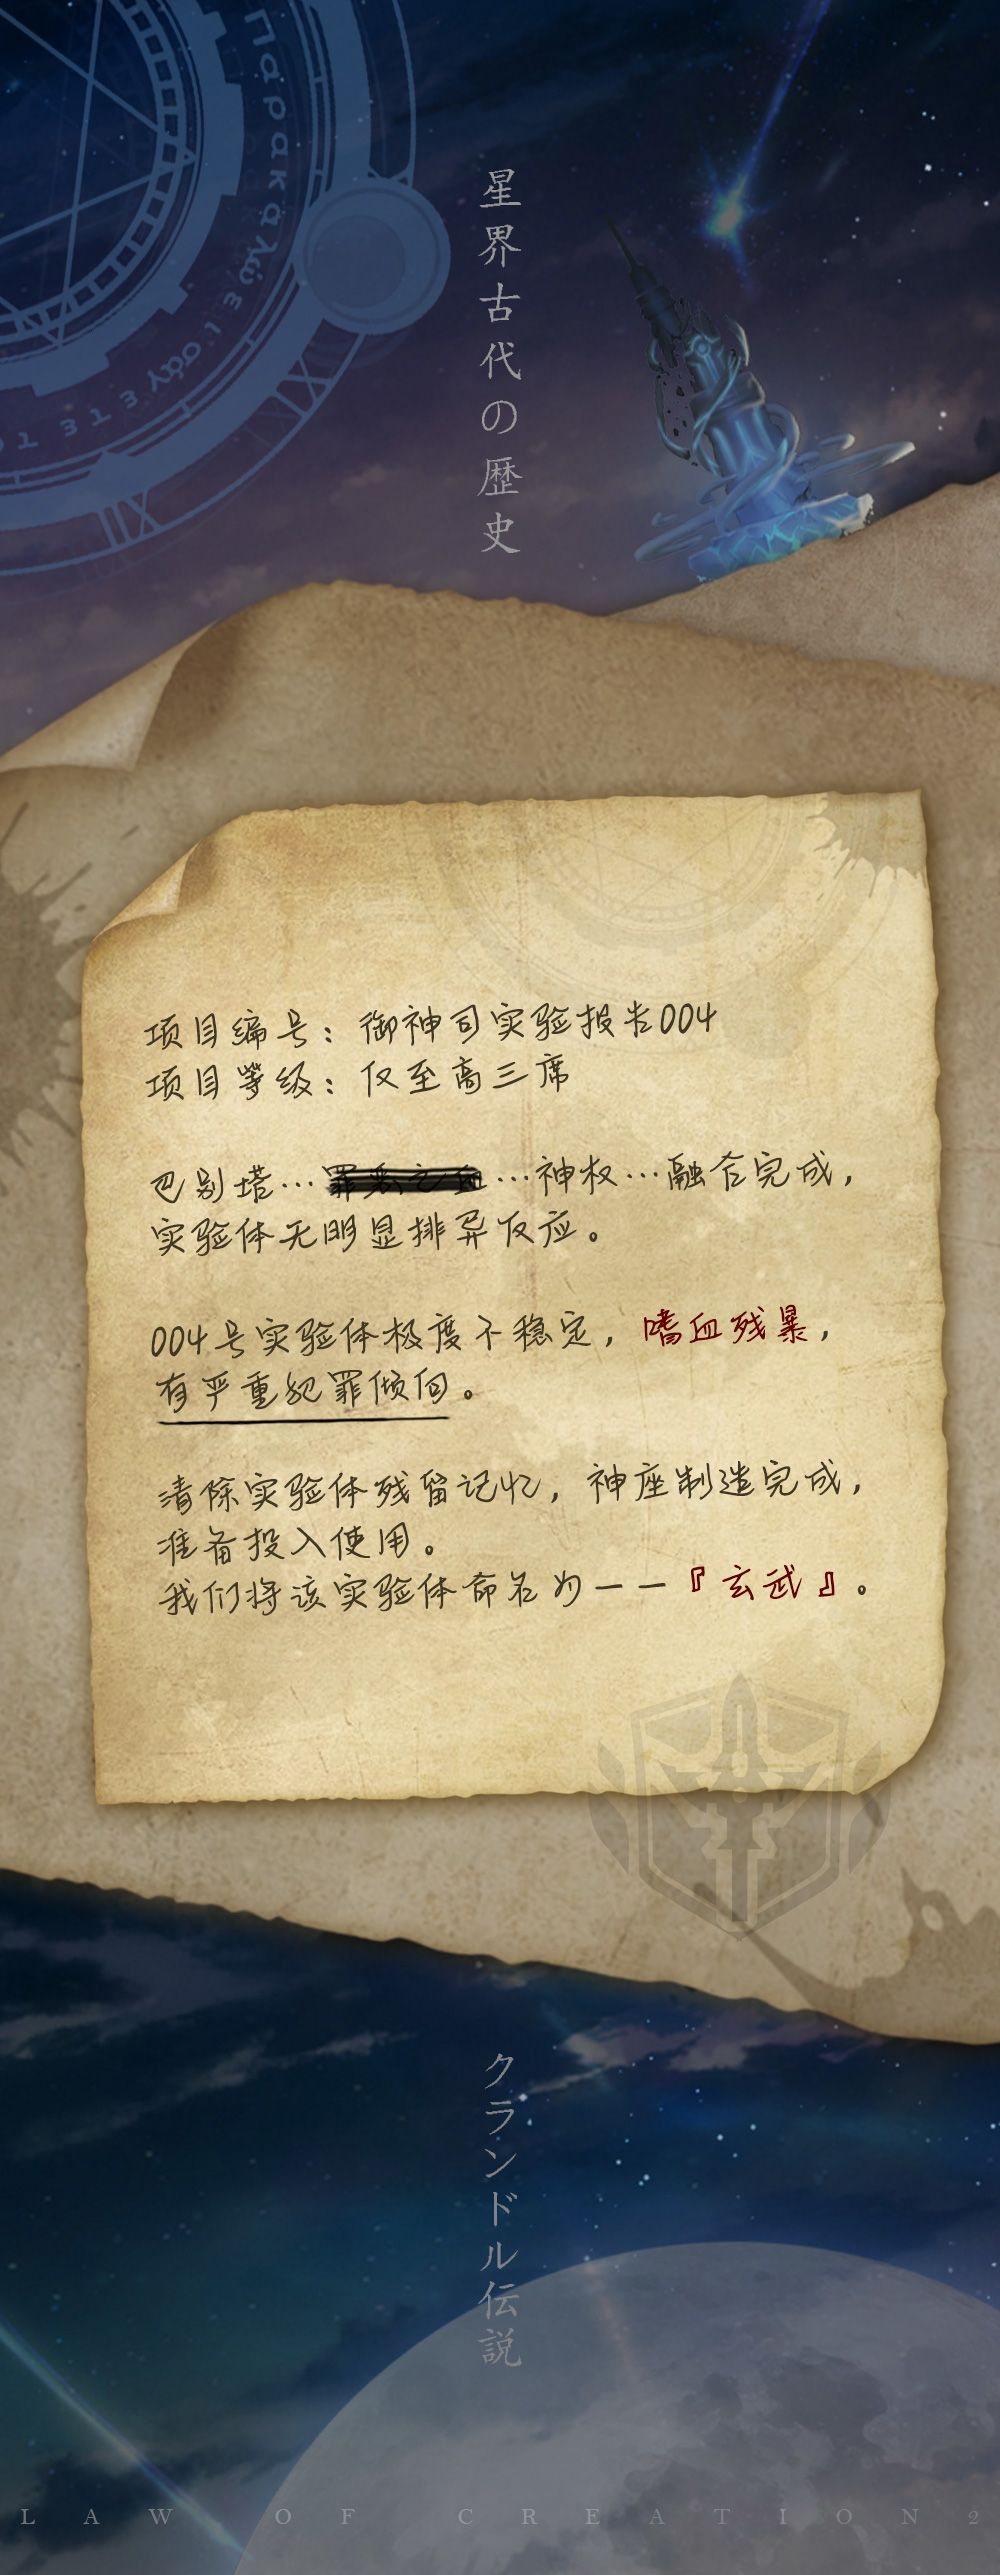 Παρακαλώ
星界古代の歴史
项目编号：御神司实验报告004
项目等级：仅至高三席
巴别塔…罪恶之血…神权…融合完成，
实验体无明显排异反应。
004号实验体极度不稳定，嗜血残暴，
有严重犯罪倾向。
清除实验体残留记忆，神座制造完成，
准备投入使用。
我们将该实验体命名为——『玄武』。
クランドル伝説
LAW OF CREATION2